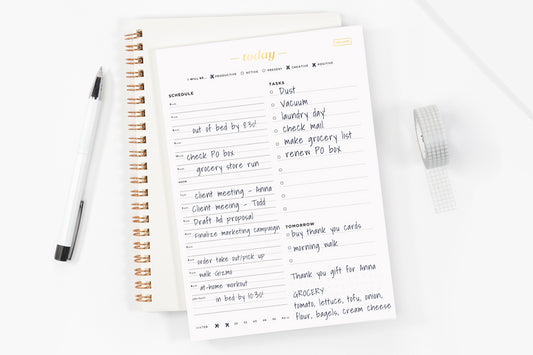 today
I WILL BE... PRODUCTIVE ACTIVE PRESENT CREATIVE POSITIVE
SCHEDULE
out of bed by 8:30!
check PO box
grocery store run
NOON
client meeting - Anna
Client meeing - Todd
Draft Ad proposal
Finalize marketing campaign
order take out/pick up
walk Gizmo
at-home workout
in bed by 10:30!
WATER
TASKS
Dust
Vacuum
laundry day!
check mail
make grocery list
renew PO box
TOMORROW
buy thank you cards
morning walk
Thank you gift for Anna
GROCERY:
tomato, lettuce, tofu, onion,
flour, bagels, cream cheese